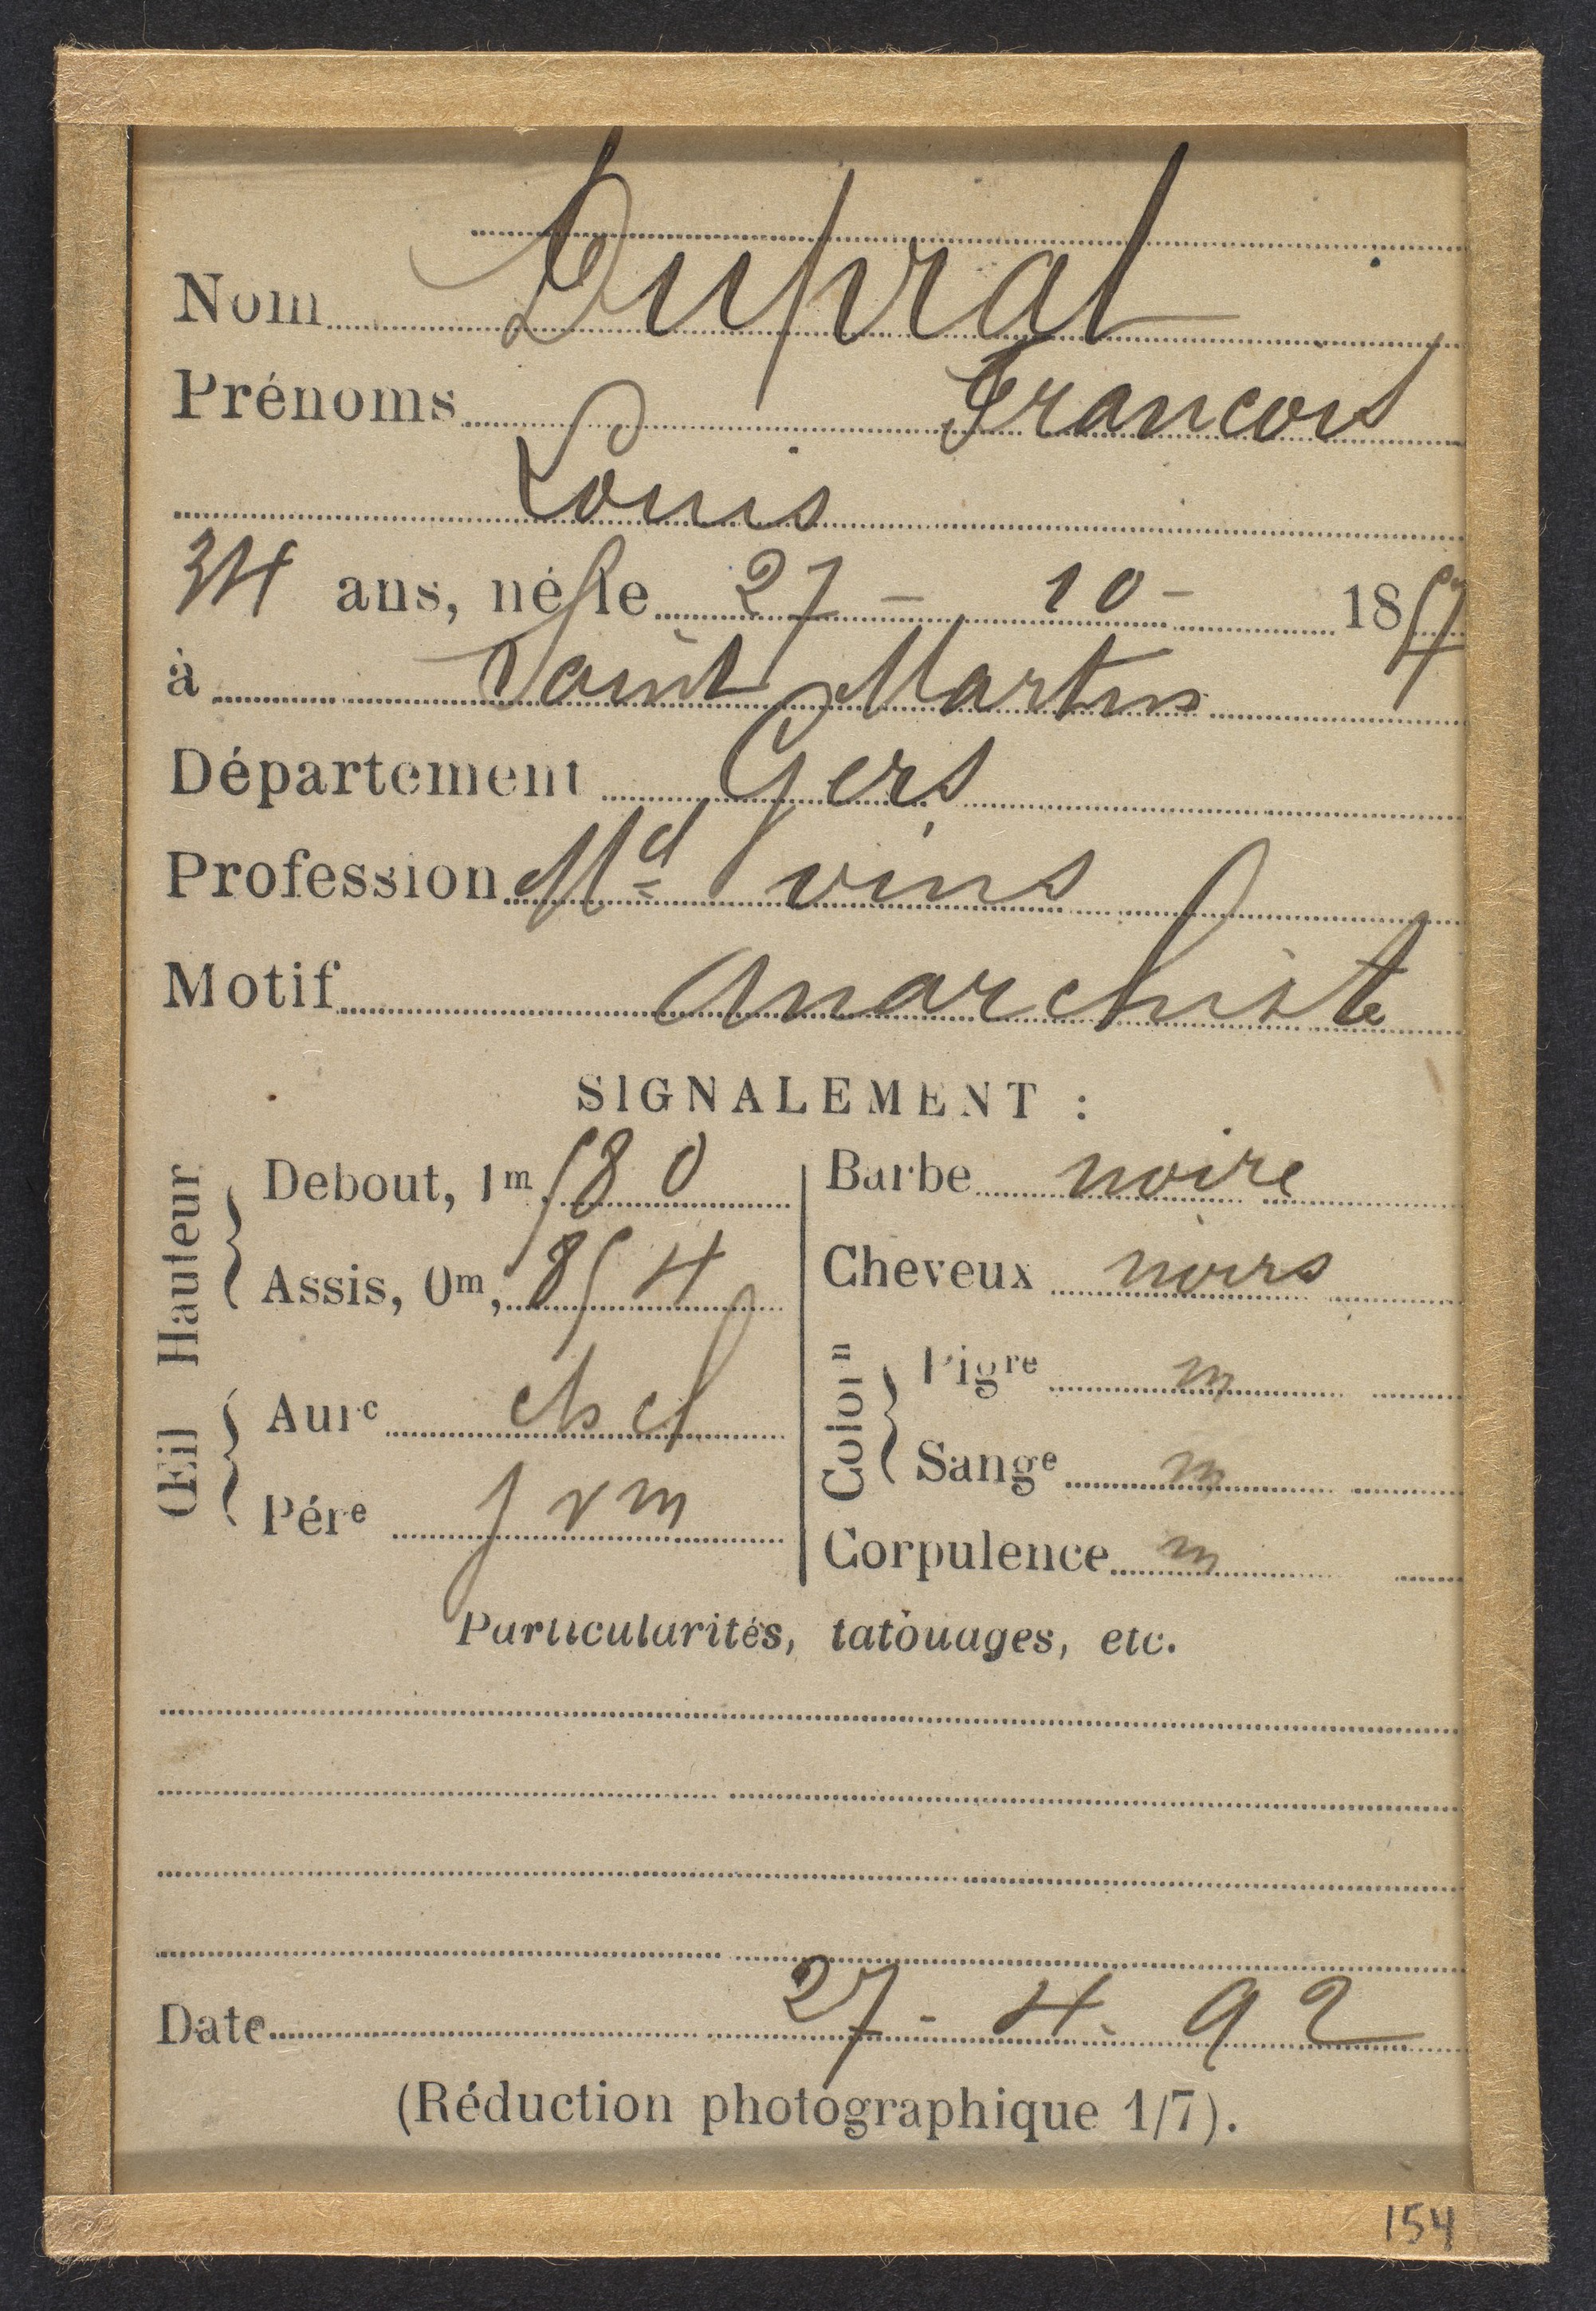 Nom Duprat
Prénoms Francois
Louis
34 ans, né le 27 - 10 - 1857
à Saint Martin
Département Gers
Profession Md vins
Motif Anarchiste
SIGNALEMENT :
Hauteur
Debout, 1m, 580
Assis, 0m, 854
Œil
Aurе ch cl
Pére j v m
Barbe noire
Cheveux noirs
Colorn
Pigre m
Sange m
Corpulence m
Particularités, tatouages, etc.
Date 27 - 4 - 92
(Réduction photographique 1/7).
154